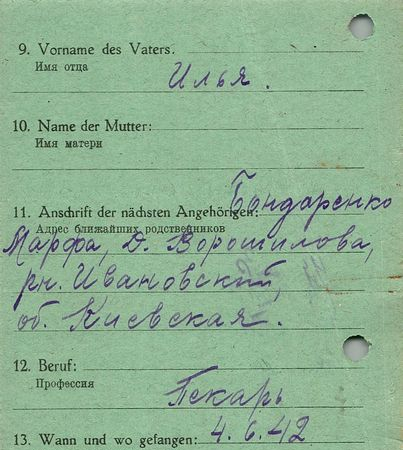 9. Vorname des Vaters.
Имя отца
Илья.
10. Name der Mutter:
Имя матери
Бондаренко
11. Anschrift der nächsten Angehörigen:
Адрес ближайших родственников
Марфа, д. Ворошилова,
рн. Ивановский,
об. Киевская.
12. Beruf:
Профессия
Пекарь
13. Wann und wo gefangen: 4.6.42